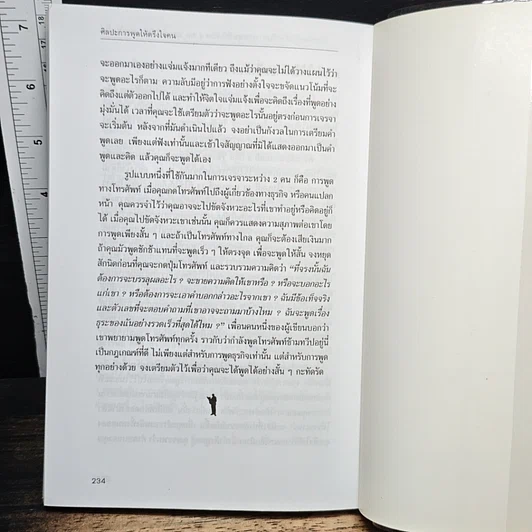 ศิลปะการพูดให้ตรึงใจคน
จะออกมาเองอย่างแจ่มแจ้งมากทีเดียว ถึงแม้ว่าคุณจะไม่ได้วางแผนไว้ว่า
จะพูดอะไรก็ตาม ความลับมีอยู่ว่าการฟังอย่างตั้งใจจะขจัดแนวโน้มที่จะ
คิดถึงแต่ตัวออกไปได้ และทำให้จิตใจแจ่มแจ้งเพื่อจะคิดถึงเรื่องที่พูดอย่าง
มุ่งมั่นได้ เวลาที่คุณจะใช้เตรียมตัวว่าจะพูดอะไรนั้นอยู่ตรงก่อนการเจรจา
จะเริ่มต้น หลังจากที่มันดำเนินไปแล้ว จงอย่าเป็นกังวลในการเตรียมคำ
พูดเลย เพียงแต่ฟังเท่านั้นและเข้าใจสัญญาณที่มิได้แสดงออกมาเป็นคำ
พูดและคิด แล้วคุณก็จะพูดได้เอง
รูปแบบหนึ่งที่ใช้กันมากในการเจรจาระหว่าง 2 คน ก็คือ การพูด
ทางโทรศัพท์ เมื่อคุณกดโทรศัพท์ไปถึงผู้เกี่ยวข้องทางธุรกิจ หรือคนแปลก
หน้า คุณควรจำไว้ว่าคุณอาจจะไปขัดจังหวะอะไรที่เขาทำอยู่หรือคิดอยู่ก็
ได้ เมื่อคุณไปขัดจังหวะเขาเช่นนั้น คุณก็ควรแสดงความสุภาพต่อเขาโดย
การพูดเพียงสั้น ๆ และถ้าเป็นโทรศัพท์ทางไกล คุณก็จะต้องเสียเงินมาก
ถ้าคุณมัวพูดชักช้าแทนที่จะพูดเร็ว ๆ ให้ตรงจุด เพื่อจะพูดให้สั้น จงหยุด
สักนิดก่อนที่คุณจะกดปุ่มโทรศัพท์ และรวบรวมความคิดว่า "ที่จริงนั้นฉัน
ต้องการจะบรรลุผลอะไร ? จะขายความคิดให้เขาหรือ ? หรือจะบอกอะไร
แก่เขา ? หรือต้องการจะเอาคำบอกกล่าวอะไรจากเขา ? ฉันมีข้อเท็จจริง
และตัวเลขที่จะตอบคำถามที่เขาอาจจะถามมาบ้างไหม ? ฉันจะพูดเรื่อง
ธุระของฉันอย่างรวดเร็วที่สุดได้ไหม ?" เพื่อนคนหนึ่งของผู้เขียนบอกว่า
เขาพยายามพูดโทรศัพท์ทุกครั้ง ราวกับว่ากำลังพูดโทรศัพท์ข้ามทวีปอยู่นี่
เป็นกฎเกณฑ์ที่ดี ไม่เพียงแต่สำหรับการพูดธุรกิจเท่านั้น แต่สำหรับการพูด
ทุกอย่างด้วย จงเตรียมตัวไว้เพื่อว่าคุณจะได้พูดได้อย่างสั้น ๆ กะทัดรัด
234
7
6
5